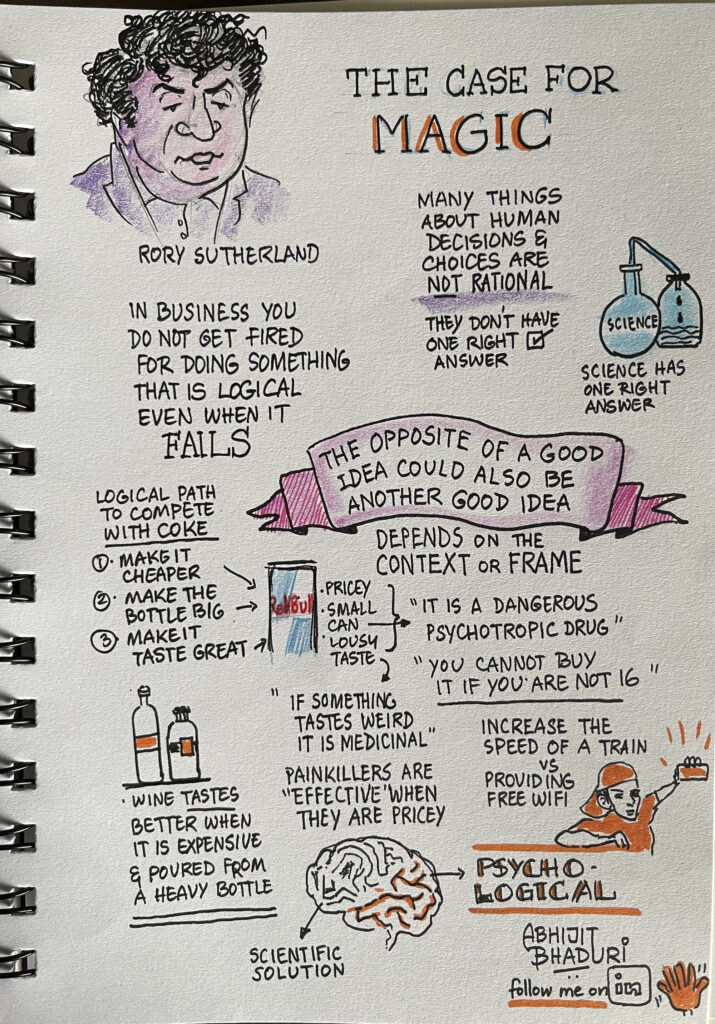 THE CASE FOR
MAGIC
RORY SUTHERLAND
MANY THINGS
ABOUT HUMAN
DECISIONS &
CHOICES ARE
NOT RATIONAL
THEY DON'T HAVE
ONE RIGHT
ANSWER
SCIENCE
SCIENCE HAS
ONE RIGHT
ANSWER
IN BUSINESS YOU
DO NOT GET FIRED
FOR DOING SOMETHING
THAT IS LOGICAL
EVEN WHEN IT
FAILS
THE OPPOSITE OF A GOOD
IDEA COULD ALSO BE
ANOTHER GOOD IDEA
DEPENDS ON THE
CONTEXT OR FRAME
LOGICAL PATH
TO COMPETE
WITH COKE
1 · MAKE IT
CHEAPER
2 · MAKE THE
BOTTLE BIG
3 · MAKE IT
TASTE GREAT
RedBull
· PRICEY
· SMALL
CAN
· LOUSY
TASTE
"IT IS A DANGEROUS
PSYCHOTROPIC DRUG"
"YOU CANNOT BUY
IT IF YOU ARE NOT 16"
"IF SOMETHING
TASTES WEIRD
IT IS MEDICINAL"
PAINKILLERS ARE
"EFFECTIVE" WHEN
THEY ARE PRICEY
INCREASE THE
SPEED OF A TRAIN
VS
PROVIDING
FREE WIFI
· WINE TASTES
BETTER WHEN
IT IS EXPENSIVE
& POURED FROM
A HEAVY BOTTLE
PSYCHO-
LOGICAL
SCIENTIFIC
SOLUTION
ABHIJIT
BHADURI
follow me on in